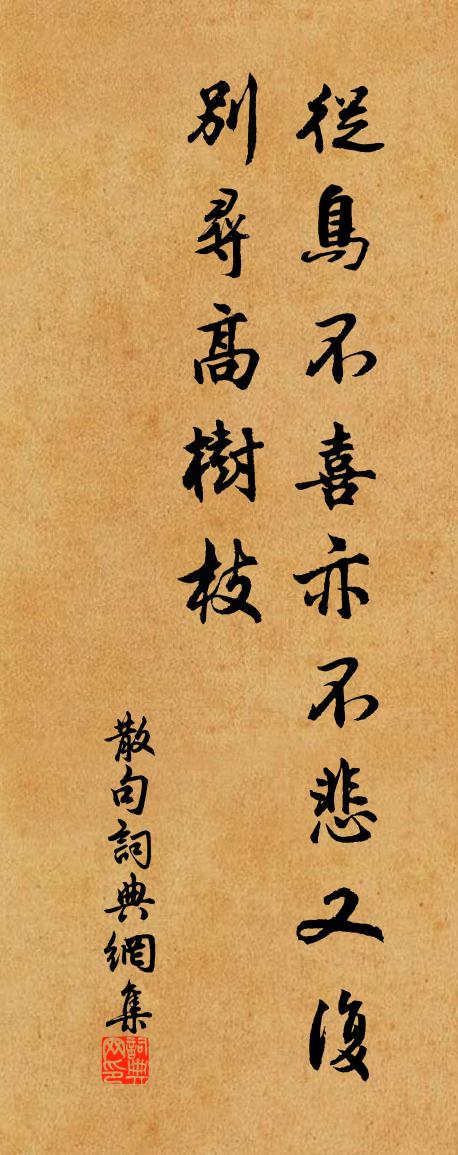 從鳥不喜亦不悲又復
別尋高樹枝
散句詞典網集
詞典網印